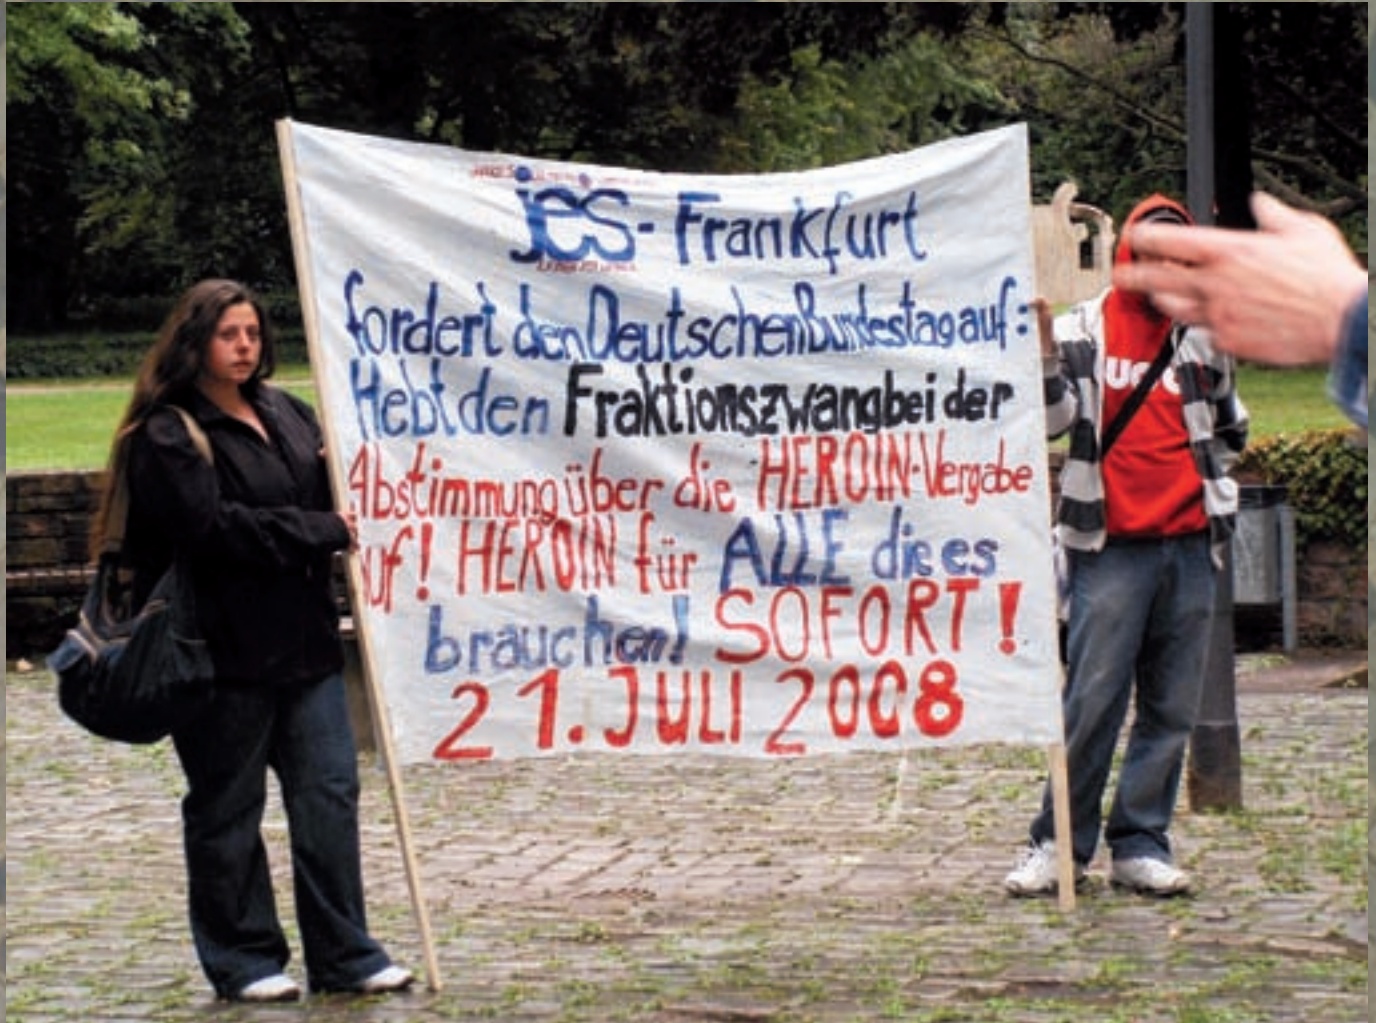 jes - Frankfurt
fordert den Deutschen Bundestag auf:
Hebt den Fraktionszwang bei der
Abstimmung über die HEROIN-Vergabe
auf! HEROIN für ALLE die es
brauchen! SOFORT!
21. JULI 2008